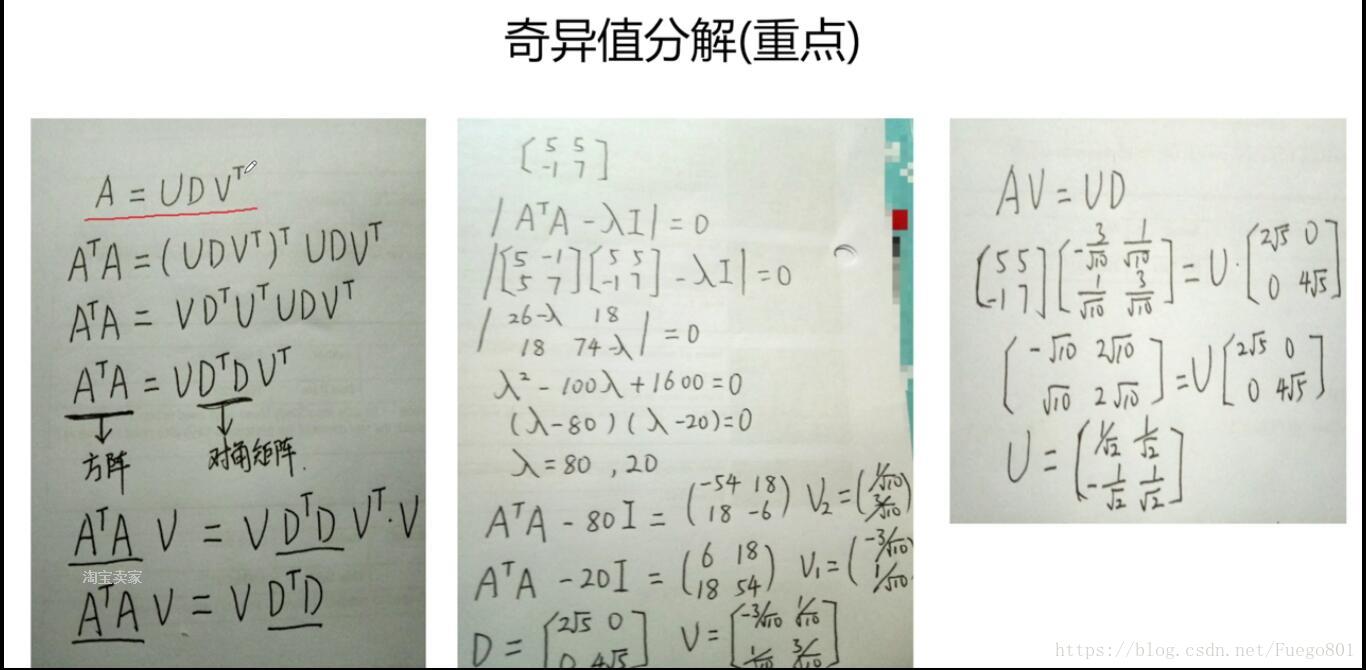 奇异值分解(重点)
A = UDVᵀ
AᵀA = (UDVᵀ)ᵀ UDVᵀ
AᵀA = VDᵀUᵀUDVᵀ
AᵀA = VDᵀDVᵀ
方阵 对角矩阵.
AᵀA V = V DᵀD Vᵀ·V
淘宝卖家
AᵀA V = V DᵀD
[5 5
-1 7]
|AᵀA - λI| = 0
|[5 -1
5 7] [5 5
-1 7] - λI| = 0
|26-λ 18
18 74-λ| = 0
λ² - 100λ + 1600 = 0
(λ-80)(λ-20)=0
λ = 80 , 20
AᵀA - 80I = (-54 18
18 -6) V₂ = (1/√10
3/√10)
AᵀA - 20I = (6 18
18 54) V₁ = (-3/√10
1/√10)
D = [2√5 0
0 4√5] V = [-3/√10 1/√10
1/√10 3/√10]
AV = UD
[5 5
-1 7] [-3/√10 1/√10
1/√10 3/√10] = U· [2√5 0
0 4√5]
[-√10 2√10
√10 2√10] = U [2√5 0
0 4√5]
U = [1/√2 1/√2
-1/√2 1/√2]
https://blog.csdn.net/Fuego801